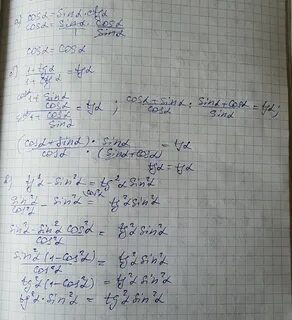 а) cosα = sinα · ctgα
cosα = sinα/1 · cosα/sinα
cosα = cosα
б) (1 + tgα)/(1 + ctgα) = tgα
(1 + sinα/cosα)/(1 + cosα/sinα) = tgα ; (cosα + sinα)/cosα : (sinα + cosα)/sinα = tgα ;
(cosα + sinα)/cosα · sinα/(sinα + cosα) = tgα
tgα = tgα
в) tg²α - sin²α = tg²α sin²α
sin²α/cos²α - sin²α = tg²α sin²α
(sin²α - sin²α cos²α)/cos²α = tg²α sin²α
sin²α (1 - cos²α)/cos²α = tg²α sin²α
tg²α (1 - cos²α) = tg²α sin²α
tg²α · sin²α = tg²α sin²α